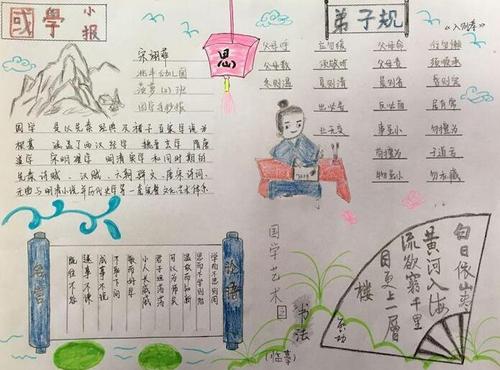 國學
小报
思
弟子规
《入则孝》
父母呼
应勿缓
父母命
行勿懒
父母教
须敬听
父母责
须顺承
冬则温
夏则凊
晨则省
昏则定
出必告
反必面
居有常
业无变
事虽小
勿擅为
苟擅为
子道亏
物虽小
勿私藏
国学
先秦经典及诸子百家
根基
涵盖了两汉经学
魏晋玄学
隋唐
道学
宋明理学
明清实学和同时期的
先秦诗赋
汉赋
六朝骈文
唐宋诗词
元曲与明清小说并历代史学等一套完整文化艺术体系
名言
论语
学而不思则罔
思而不学则殆
温故而知新
可以为师矣
君子坦荡荡
小人长戚戚
敏而好学
不耻下问
成事不说
遂事不谏
既往不咎
国学艺术园
书法
(临摹)
白日依山尽
黄河入海
流欲窮千里
目更上一層
楼